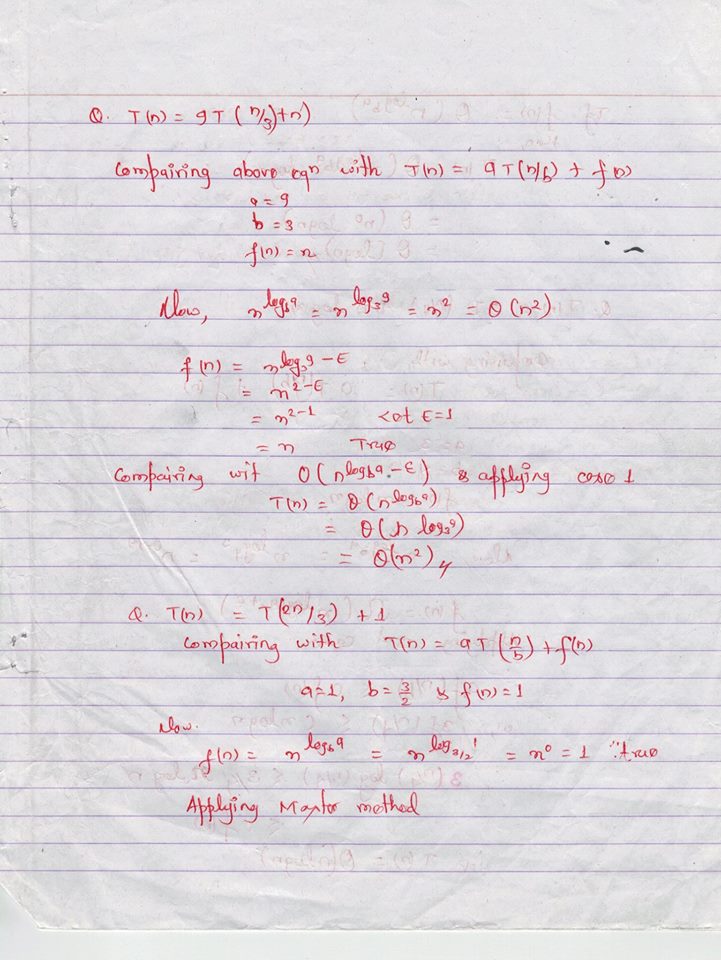 Q. T(n) = 9T(n/3)+n)
Compairing above eqn with T(n) = aT(n/b) + f(n)
a = 9
b = 3
f(n) = n
Now, n^log_b a = n^log_3 9 = n^2 = Θ(n^2)
f(n) = n^log_3 9 - ε
= n^2-ε
= n^2-1 Let ε=1
= n True
Compairing wit O(n^log_b a - ε) & applying case 1
T(n) = Θ(n^log_b a)
= Θ(n log_3 9)
= Θ(n^2)
Q. T(n) = T(2n/3) + 1
Compairing with T(n) = aT(n/b) + f(n)
a=1, b= 3/2 & f(n) = 1
Now.
f(n) = n^log_b a = n^log_3/2 1 = n^0 = 1 ∵true
Applying Master method